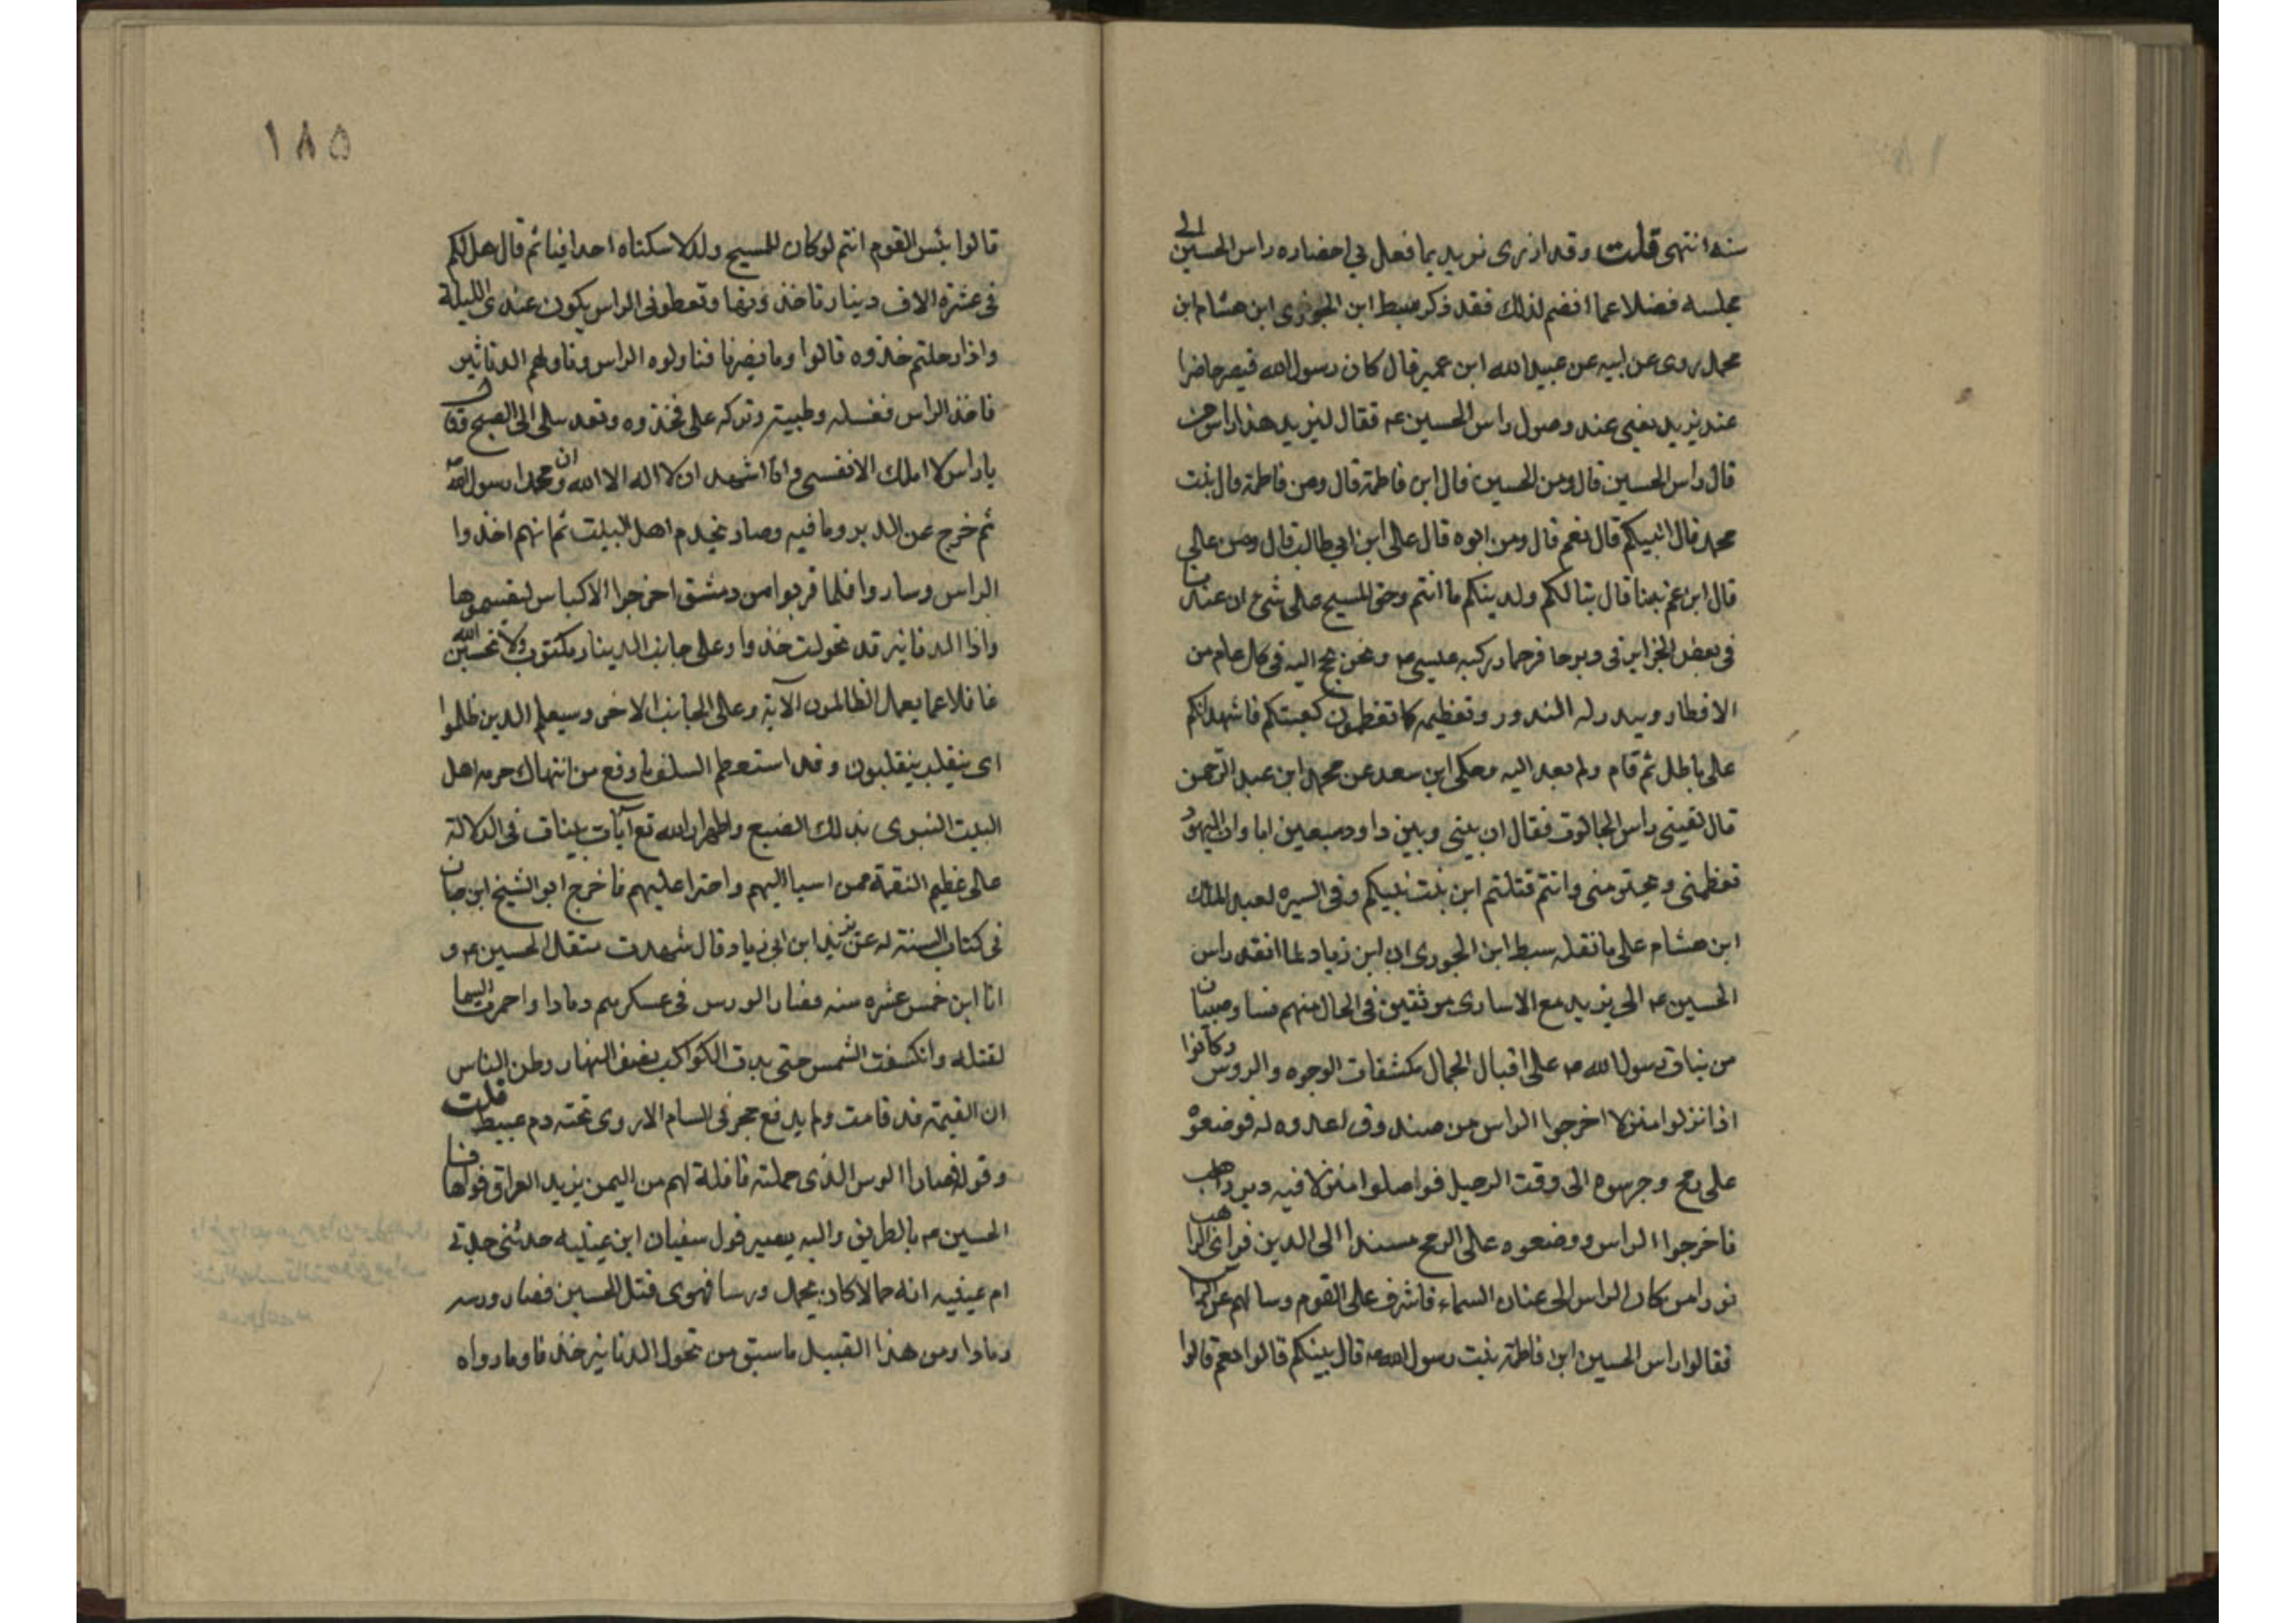 سنه انتهى قلت وقد ازرى نويد بما فعل في احضاره راس الحسين الى
مجلسه فضلا عما انضم لذلك فقد ذكر سبط ابن الجوزى ابن هشام ابن
محمد روى عن ابيه عن عبيد الله ابن عمير قال كان رسول الله قيصر حاضرا
عند يزيد يعنى عند وصول راس الحسين عه فقال ليزيد هذا راس من
قال راس الحسين قال ومن الحسين قال ابن فاطمة قال ومن فاطمة قال بنت
محمد قال انبيكم قال نعم قال ومن ابوه قال على ابن ابي طالب قال ومن على
قال ابن عم نبينا قال تبا لكم ولدينكم ما انتم وحق المسيح على شئ ان عندنا
فى بعض الجزاير فى دير حافر حمار ركبه عيسى عه ونحن نحج اليه فى كل عام من
الاقطار ويندر له الندور وتعظيمه كما تعظمون كعبتكم فاشهد انكم
على باطل ثم قام ولم يعد اليه وحكى ابن سعد عن محمد ابن عبد الرحمن
قال لقينى راس الجالوت فقال ان بينى وبين داود سبعين ابا وان اليهود
تعظمنى وتحترمنى وانتم قتلتم ابن بنت نبيكم وفى السيره لعبد الملك
ابن هشام على ما نقله سبط ابن الجوزى ان ابن زياد لما انفد راس
الحسين عه الى يزيد مع الاسارى موثقين فى الحال منهم نسا وصبيان
من بنات رسول الله صه على اقبال الجمال مكشفات الوجوه والروس وكانوا
اذا نزلوا منزلا اخرجوا الراس من صندوق اعدوه له فوضعوه
على رمح وحرسوه الى وقت الرحيل فواصلوا منزلا فيه دير راهب
فاخرجوا الراس ووضعوه على الرمح مسندا الى الدير فراى الراهب
نورا من مكان الراس الى عنان السماء فاشرف على القوم وسالهم عن الراس
فقالوا راس الحسين ابن فاطمة بنت رسول الله صه قال نبيكم قالوا نعم قالوا
١٨٥
قالوا بئس القوم انتم لو كان للمسيح ولد لاسكناه احداقنا ثم قال هل لكم
فى عشرة الاف دينار تاخذونها وتعطونى الراس يكون عندى الليلة
واذا رحلتم خذوه قالوا وما يضرنا فناولوه الراس وناولهم الدنانير
فاخذ الراس فغسله وطيبه وتركه على فخذه وقعد يبكى الى الصبح وقال
يا راس لا املك الا نفسى وانا اشهد ان لا اله الا الله وان محمدا رسول الله صه
ثم خرج عن الدير وما فيه وصار يخدم اهل البيت ثم انهم اخذوا
الراس وساروا فلما قربوا من دمشق اخرجوا الاكياس ليقسموها
واذا الدنانير قد تحولت خذوا وعلى جانب الدينار مكتوب ولا تحسبن الله
غافلا عما يعمل الظالمون الآية وعلى الجانب الاخر وسيعلم الدين ظلموا
اى منقلب ينقلبون وقد استعظم السلف ما وقع من انتهاك حرمه اهل
البيت النبوى بذلك الصنيع واظهر الله تع آيات بينات فى الدلالة
على عظيم النقمة ممن اسيا اليهم واجترا عليهم فاخرج ابو الشيخ ابن حبان
فى كتاب السنة له عن يزيد ابن ابى زياد قال شهدت مقتل الحسين عه و
انا ابن خمس عشره سنه فصار الورس فى عسكرهم رمادا واحمرت السما
لقتله وانكسفت الشمس حتى بدت الكواكب نصف النهار وظن الناس
ان القيمة قد قامت ولم يرفع حجر فى الشام الا روى تحته دم عبيط قلت
وقوله فصار الورس الذى حملته قافلة لهم من اليمن يريد العراق فوافا
الحسين عه بالطريق واليه يشير قول سفيان ابن عيينه حدثنى جدتى
ام عيينه انه حمالا كان يحمل ورسا فهوى قتل الحسين فصار ورسه
رمادا ومن هذا القبيل ما سبق من تحول الدنانير خذفا وما رواه